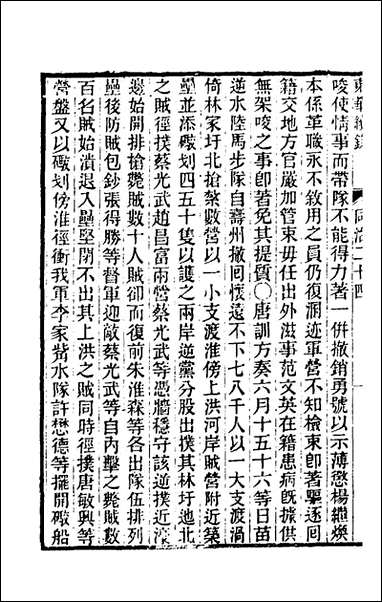 東華續錄 同治二十四
唆使情事而帶隊不能得力著一併撤銷勇號以示薄懲楊繼煥
本係革職永不敘用之員仍復溷迹軍營不知檢束即著驅逐囘
籍交地方官嚴加管束毋任出外滋事范文英在籍患病旣據供
無架唆之事卽著免其提質〇唐訓方奏六月十五十六等日苗
逆水陸馬步隊自壽州撤囘懷遠不下七八千人以一大支渡渦
倚林家圩北搶築數營以一小支渡淮傍上洪河岸賊營附近築
壘並添礮划四五十隻以護之兩岸逆黨分股出撲其林圩迤北
之賊徑撲蔡光武趙昌富兩營蔡光武等憑牆穩守該逆撲近濠
邊始開排槍斃賊數十人賊卻而復前朱淮森等各出隊伍排列
壘後防賊包鈔張得勝等督軍迎敵蔡光武等自內擊之斃賊數
百名賊始潰退入壘堅閉不出其上洪之賊同時徑撲唐敏興等
營盤又以礮划傍淮徑衝我軍李家觜水隊許懋德等擺開礮船